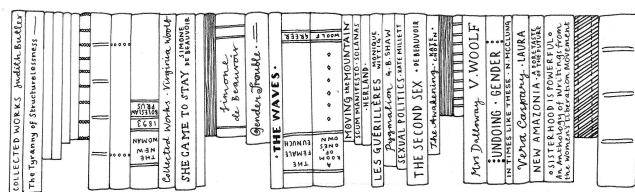 COLLECTED WORKS Judith Butler
The Tyranny of Structurelessness
BOLESLAW PRUS
1893
THE NEW WOMAN
Collected Works · Virginia Woolf
SHE CAME TO STAY · SIMONE DE BEAUVOIR
Simone de Beauvoir
Gender Trouble
· THE WAVES ·
GREER
THE FEMALE EUNUCH
WOOLF
A ROOM OF ONE'S OWN
MOVING the MOUNTAIN
SCUM MANIFESTO · SOLANAS
· HERLAND ·
LES GUÉRILLÈRES · MONIQUE WITTIG
Pygmalion G.B. SHAW
SEXUAL POLITICS · KATE MILLETT
THE SECOND SEX · DE BEAUVOIR
The Awakening · KATE CHOPIN
Mrs Dalloway V. WOOLF
UNDOING · GENDER
IN TIMES LIKE THESE · N. McCLUNG
Vera Caspary · LAURA
NEW AMAZONIA · A FORETASTE OF THE FUTURE
SISTERHOOD IS POWERFUL
An Anthology of Writings from the Women's Liberation Movement